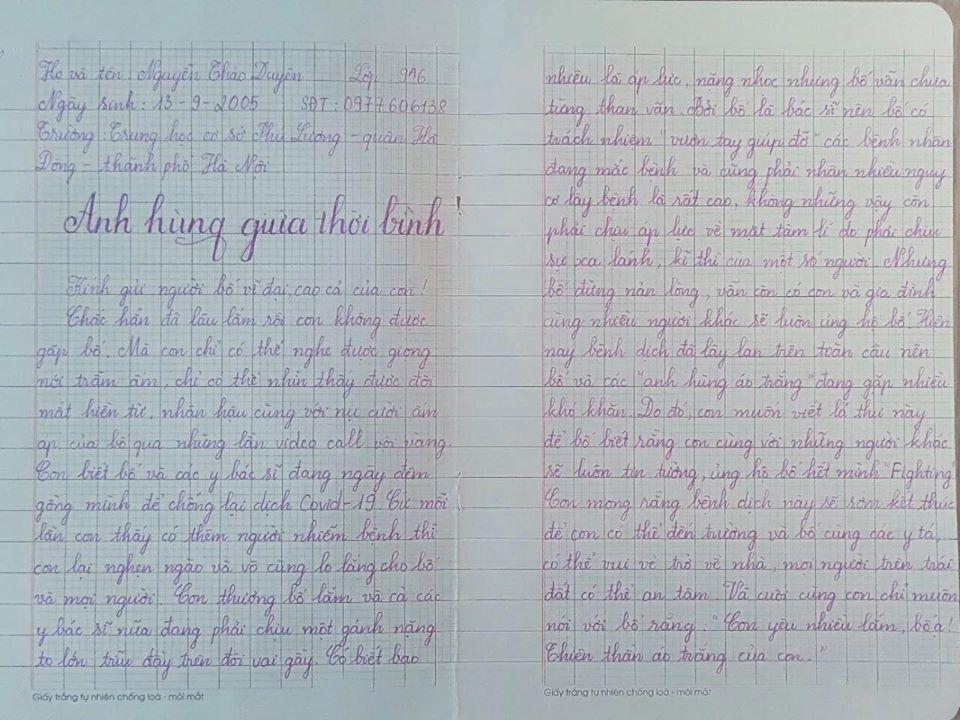 Họ và tên: Nguyễn Thảo Duyên Lớp 9A6
Ngày sinh: 13-9-2005 SĐT: 0977606138
Trường: Trung học cơ sở Phú Lương - quận Hà
Đông - thành phố Hà Nội
Anh hùng giữa thời bình!
Kính gửi người bố vĩ đại, cao cả của con!
Chắc hẳn đã lâu lắm rồi con không được
gặp bố. Mà con chỉ có thể nghe được giọng
nói trầm ấm, chỉ có thể nhìn thấy được đôi
mắt hiền từ, nhân hậu cùng với nụ cười ấm
áp của bố qua những lần video call vội vàng.
Con biết bố và các y bác sĩ đang ngày đêm
gồng mình để chống lại dịch Covid-19. Cứ mỗi
lần con thấy có thêm người nhiễm bệnh thì
con lại nghẹn ngào và vô cùng lo lắng cho bố
và mọi người. Con thương bố lắm và cả các
y bác sĩ nữa đang phải chịu một gánh nặng
to lớn trĩu đầy trên đôi vai gầy. Có biết bao
Giấy trắng tự nhiên chống loá - mỏi mắt
nhiêu là áp lực, nặng nhọc nhưng bố vẫn chưa
từng than vãn. Bởi bố là bác sĩ nên bố có
trách nhiệm "vươn tay giúp đỡ" các bệnh nhân
đang mắc bệnh và cũng phải nhận nhiều nguy
cơ lây bệnh là rất cao, không những vậy còn
phải chịu áp lực về mặt tâm lí do phải chịu
sự xa lánh, kì thị của một số người. Nhưng
bố đừng nản lòng, vẫn còn có con và gia đình
cùng nhiều người khác sẽ luôn ủng hộ bố. Hiện
nay bệnh dịch đã lây lan trên toàn cầu nên
bố và các "anh hùng áo trắng" đang gặp nhiều
khó khăn. Do đó, con muốn viết lá thư này
để bố biết rằng con cùng với những người khác
sẽ luôn tin tưởng, ủng hộ bố hết mình "Fighting"
Con mong rằng bệnh dịch này sẽ sớm kết thúc
để con có thể đến trường và bố cùng các y tá,...
có thể vui vẻ trở về nhà, mọi người trên trái
đất có thể an tâm. Và cuối cùng con chỉ muốn
nói với bố rằng: "Con yêu nhiều lắm, bố ạ!
Thiên thần áo trắng của con."
Giấy trắng tự nhiên chống loá - mỏi mắt